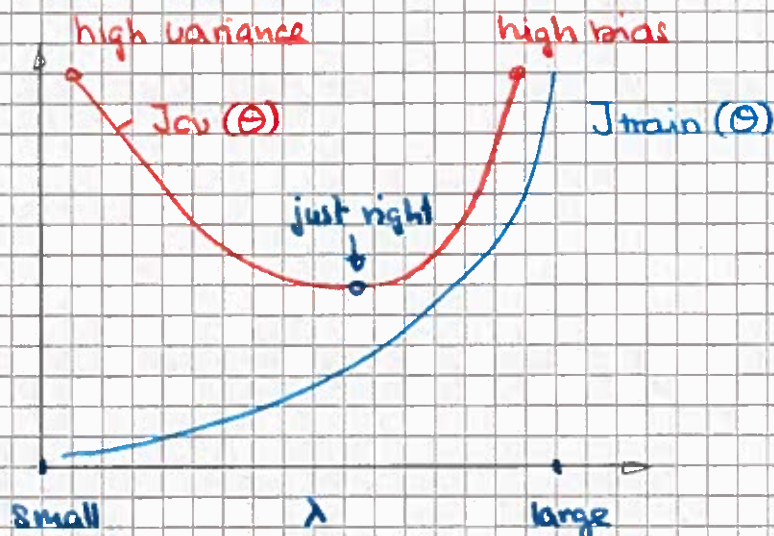 high variance high bias
Jcv (Θ) Jtrain (Θ)
just right
small λ large